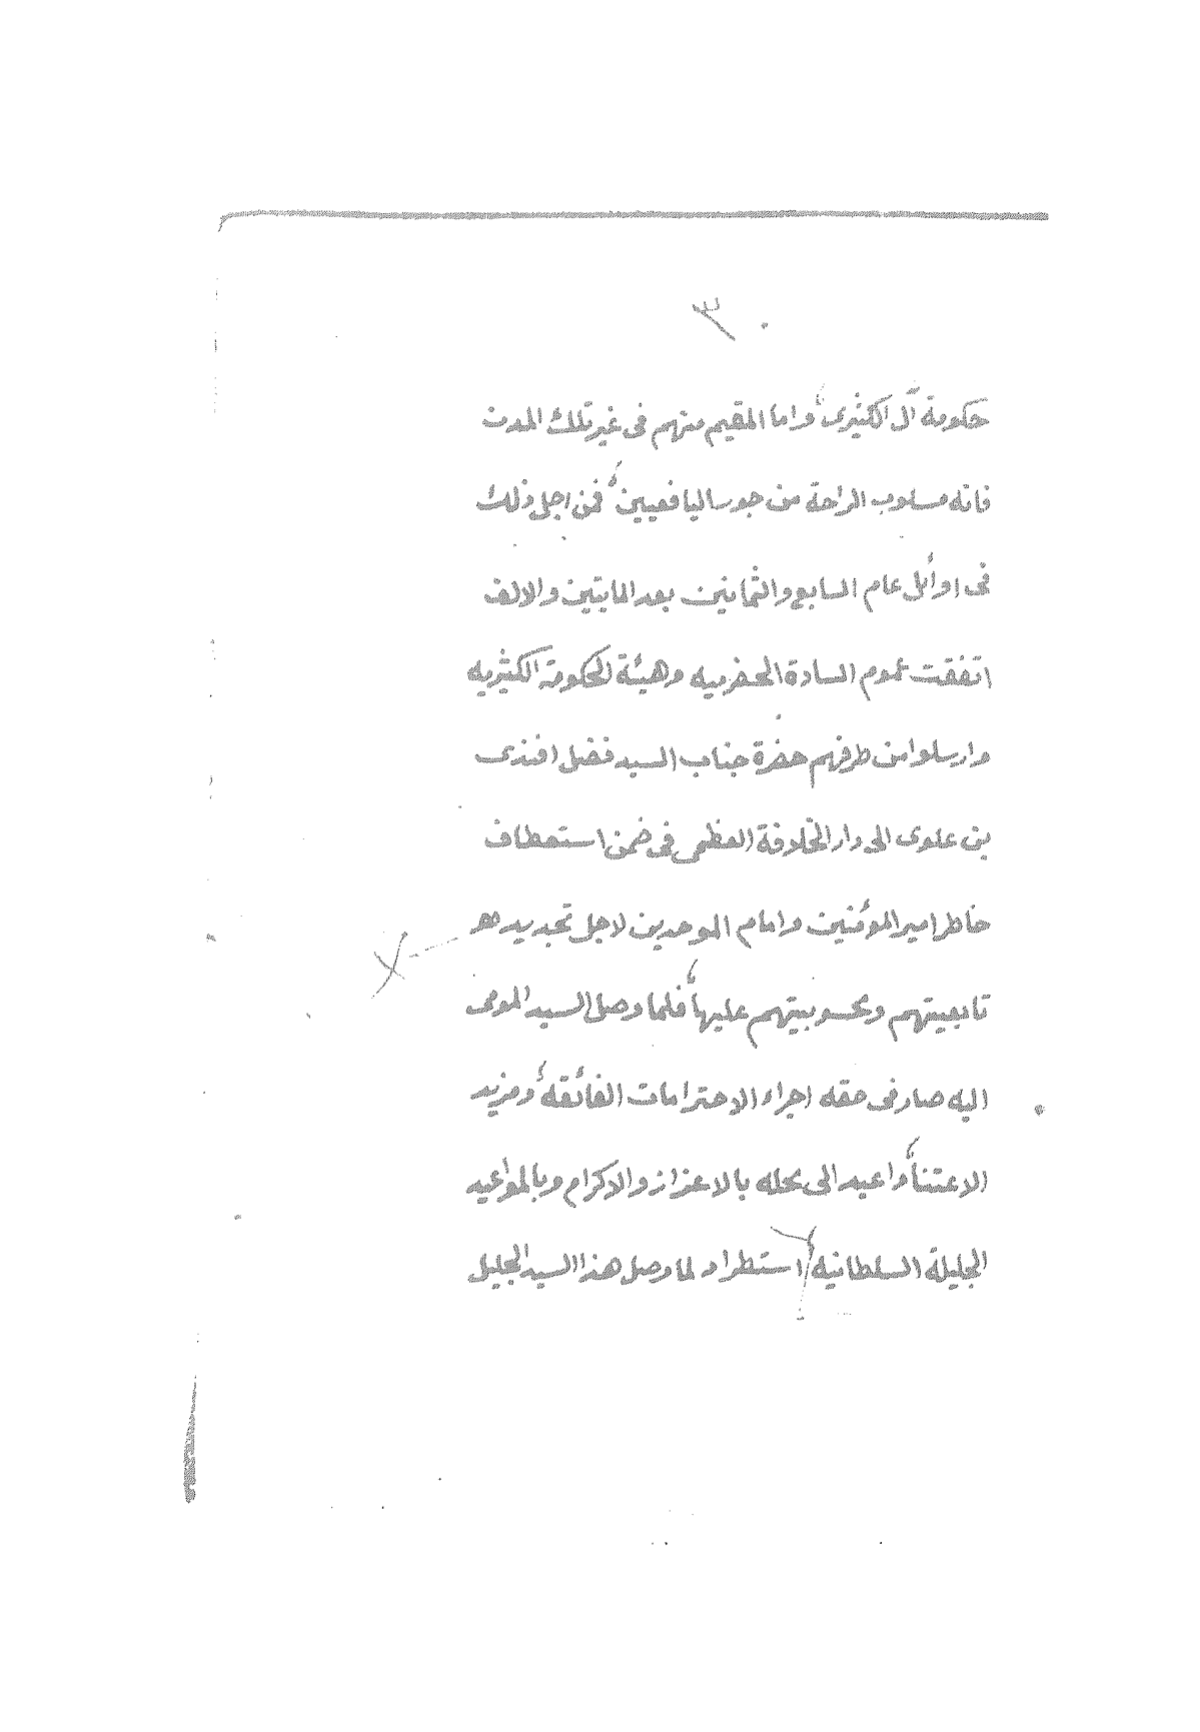 ٣
حكومة آل الكثيرى، واما المقيم منهم فى غير تلك المدن
فانه مسلوب الراحة من جور اليافعيين، فمن اجل ذلك
فى اوائل عام السابع والثمانين بعد المايتين والالف
اتفقت عموم السادة الحضرميه وهيئة الحكومة الكثيريه
وارسلوا من طرفهم حضرة جناب السيد فضل افندى
بن علوى الى دار الخلافة العظمى فى ضمن استعطاف
خاطر امير المؤمنين وامام الموحدين لاجل تجديد
تابعيتهم ومحسوبيتهم عليها، فلما وصل السيد المومى
اليه صار فى حقه اجراء الاحترامات الفائقه، ومزيد
الاعتنا، واعيد الى محله بالاعزاز والاكرام وبالمواعيد
الجليلة السلطانيه، استطراد لما وصل هذا السيد الجليل